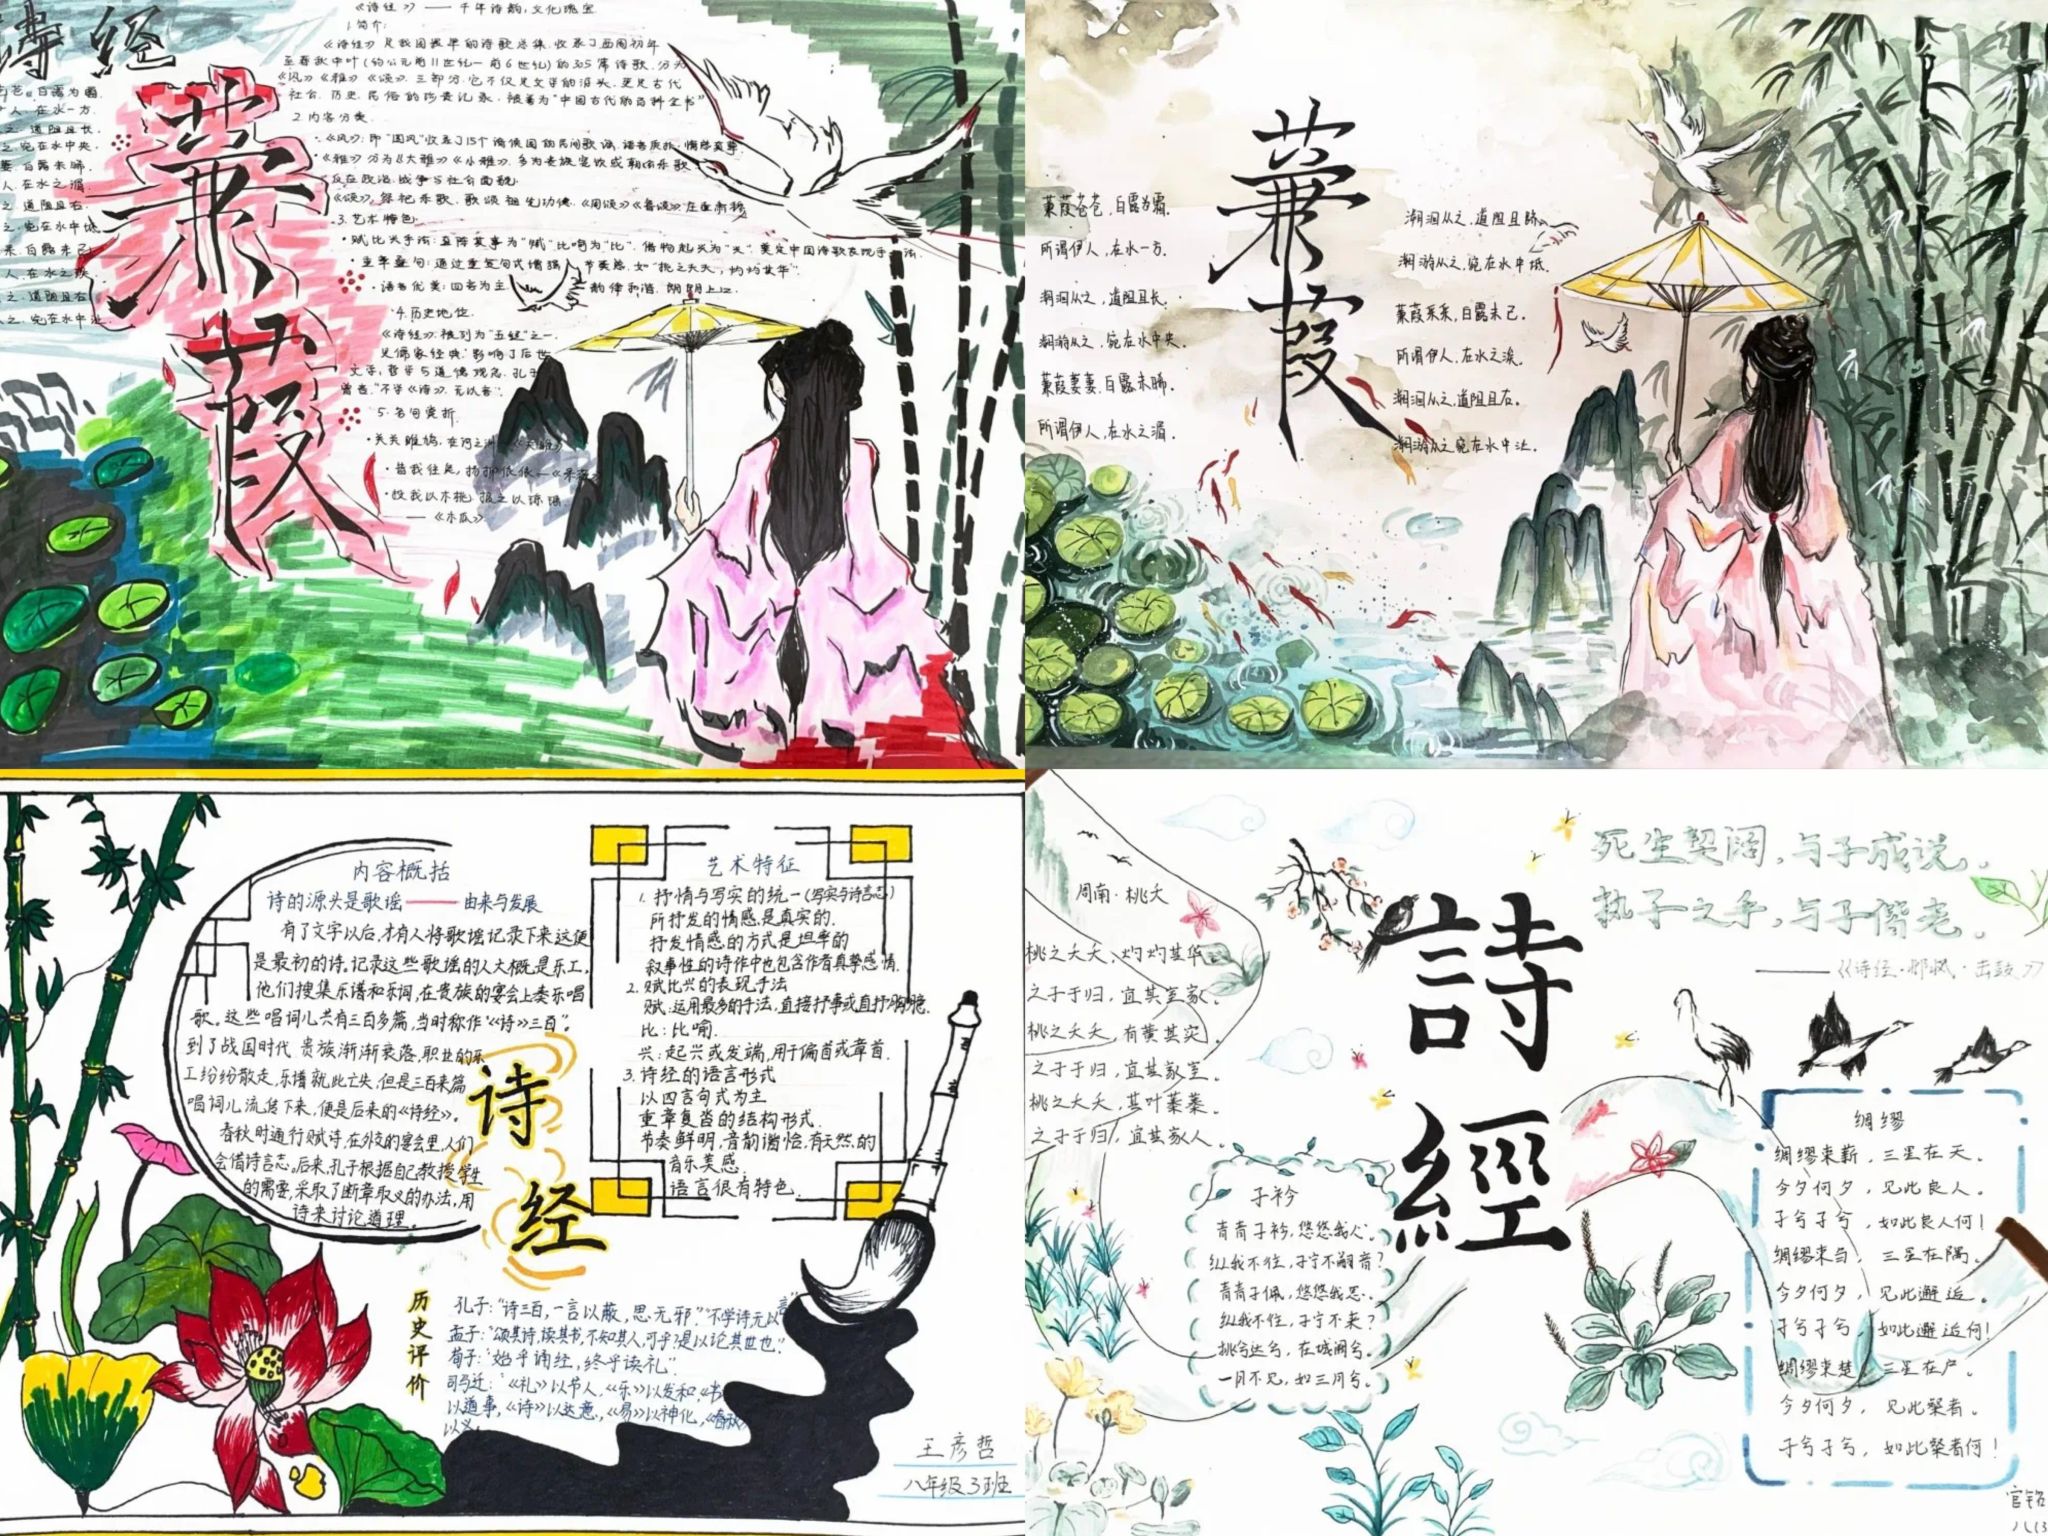 诗经
蒹葭
《诗经》——千年诗韵,文化瑰宝
1.简介:
《诗经》是我国最早的诗歌总集,收录了西周初年
至春秋中叶(约公元前11世纪—前6世纪)的305篇诗歌,分为
《风》《雅》《颂》三部分,它不仅是文学的源头,更是古代
社会、历史、民俗的珍贵记录,被誉为"中国古代的百科全书"
2.内容分类
·《风》:即"国风"收录了15个诸侯国的民间歌谣,语言质朴,情感真挚
·《雅》分为《大雅》《小雅》,多为贵族宴饮或朝廷乐歌
反应政治、战争与社会面貌.
《颂》祭祀乐歌,歌颂祖先功德,《周颂》《鲁颂》
·3.艺术特色
·赋比兴手法:直陈其事为"赋",比喻为"比",借物起兴为"兴",奠定中国诗歌表现手法.
·重章叠句:通过重复句式增强节奏感,如"桃之夭夭,灼灼其华".
·语言优美:四言为主,韵律和谐,朗朗上口.
·4.历史地位.
《诗经》被列为"五经"之一.
是儒家经典,影响了后世
文学,哲学与道德观念.孔子
曾言"不学《诗》,无以言".
5.名句赏析
·关关雎鸠,在河之洲—《关雎》
·昔我往矣,杨柳依依—《采薇》
·投我以木桃,报之以琼瑶.
——《木瓜》
苍,白露为霜.
人,在水一方.
之,道阻且长.
之,宛在水中央.
萋,白露未晞.
人,在水之湄.
之,道阻且右.
之,宛在水中坻.
采,白露未已.
人,在水之涘.
之,道阻且右.
之,宛在水中沚.
蒹葭
蒹葭苍苍,白露为霜.
所谓伊人,在水一方.
溯洄从之,道阻且长.
溯游从之,宛在水中央.
蒹葭萋萋,白露未晞.
所谓伊人,在水之湄.
溯洄从之,道阻且跻.
溯游从之,宛在水中坻.
蒹葭采采,白露未已.
所谓伊人,在水之涘.
溯洄从之,道阻且右.
溯游从之,宛在水中沚.
内容概括
诗的源头是歌谣——由来与发展
有了文字以后,才有人将歌谣记录下来这便
是最初的诗。记录这些歌谣的人大概是乐工,
他们搜集乐谱和乐词,在贵族的宴会上奏乐唱
歌。这些唱词儿共有三百多篇,当时称作"《诗》三百"。
到了战国时代,贵族渐渐衰落,职业的乐
工纷纷散走,乐谱就此亡失,但是三百来篇
唱词儿流传下来,便是后来的《诗经》。
春秋时通行赋诗,在外交的宴会里,人们
会借诗言志。后来,孔子根据自己教授学生
的需要,采取了断章取义的办法,用
诗来讨论道理。
诗经
艺术特征
1.抒情与写实的统一(写实与诗言志)
所抒发的情感是真实的.
抒发情感的方式是坦率的
叙事性的诗作中也包含作者真挚感情.
2.赋比兴的表现手法
赋:运用最多的手法,直接抒事或直抒胸臆.
比:比喻.
兴:起兴或发端,用于偏首或章首.
3.诗经的语言形式
以四言句式为主
重章复沓的结构形式.
节奏鲜明,音韵谐恰,有天然的
音乐美感.
语言很有特色.
历史评价
孔子:"诗三百,一言以蔽,思无邪"."不学诗无以言"
孟子:"颂其诗,读其书,不知其人,可乎?是以论其世也."
荀子:"始乎诵经,终乎读礼".
司马迁:"《礼》以节人,《乐》以发和,《书》
以道事,《诗》以达意,《易》以神化,《春秋》
以义.
王彦哲
八年级3班
詩經
死生契阔,与子成说。
执子之手,与子偕老。
——《诗经·邶风·击鼓》
周南·桃夭
桃之夭夭,灼灼其华。
之子于归,宜其室家。
桃之夭夭,有蕡其实。
之子于归,宜其家室。
桃之夭夭,其叶蓁蓁。
之子于归,宜其家人。
子衿
青青子衿,悠悠我心。
纵我不往,子宁不嗣音?
青青子佩,悠悠我思。
纵我不往,子宁不来?
挑兮达兮,在城阙兮。
一日不见,如三月兮。
绸缪
绸缪束薪,三星在天。
今夕何夕,见此良人。
子兮子兮,如此良人何!
绸缪束刍,三星在隅。
今夕何夕,见此邂逅。
子兮子兮,如此邂逅何!
绸缪束楚,三星在户。
今夕何夕,见此粲者。
子兮子兮,如此粲者何!